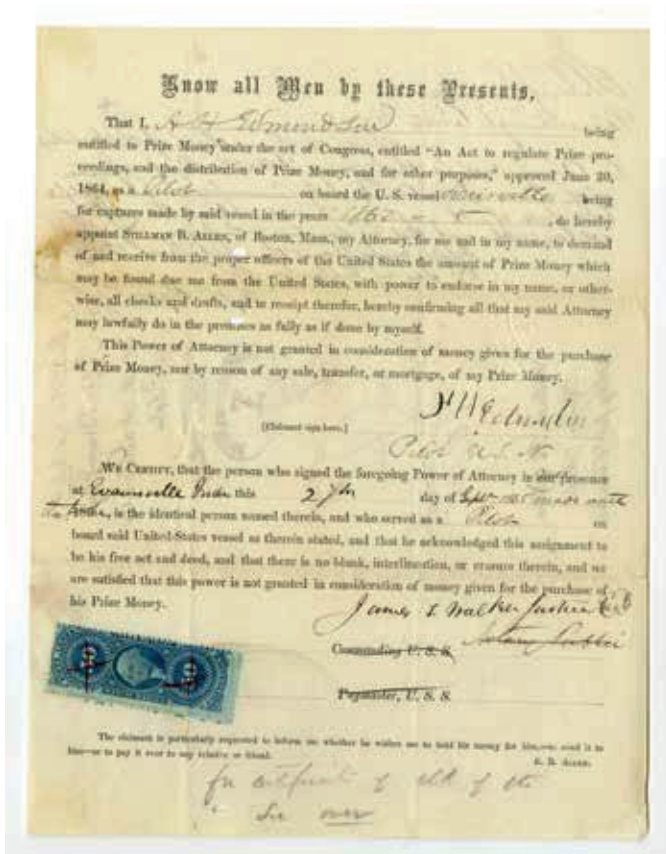 Know all Men by these Presents,
That I, being
entitled to Prize Money under the act of Congress, entitled "An Act to regulate Prize pro-
ceedings, and the distribution of Prize Money, and for other purposes," approved June 30,
1864, as a Pilot on board the U. S. vessel being
for captures made by said vessel in the years , do hereby
appoint STILLMAN B. ALLEN, of Boston, Mass., my Attorney, for me and in my name, to demand
of and receive from the proper officers of the United States the amount of Prize Money which
may be found due me from the United States, with power to endorse in my name, or other-
wise, all checks and drafts, and to receipt therefor, hereby confirming all that my said Attorney
may lawfully do in the premises as fully as if done by myself.
This Power of Attorney is not granted in consideration of money given for the purchase
of Prize Money, nor by reason of any sale, transfer, or mortgage, of my Prize Money.
[Claimant sign here.]
Pilot U.S.N.
WE CERTIFY, that the person who signed the foregoing Power of Attorney in our presence
at Evansville this 27th day of Sept
is the identical person named therein, and who served as a Pilot on
board said United States vessel as therein stated, and that he acknowledged this assignment to
be his free act and deed, and that there is no blank, interlineation, or erasure therein, and we
are satisfied that this power is not granted in consideration of money given for the purchase of
his Prize Money.
James Walker
Commanding U. S. S. Notary Public
Paymaster, U. S. S.
50 50
The claimant is particularly requested to inform me whether he wishes me to hold his money for him, send it to
him—or to pay it over to any relative or friend.
S. B. ALLEN.
of of the
See over